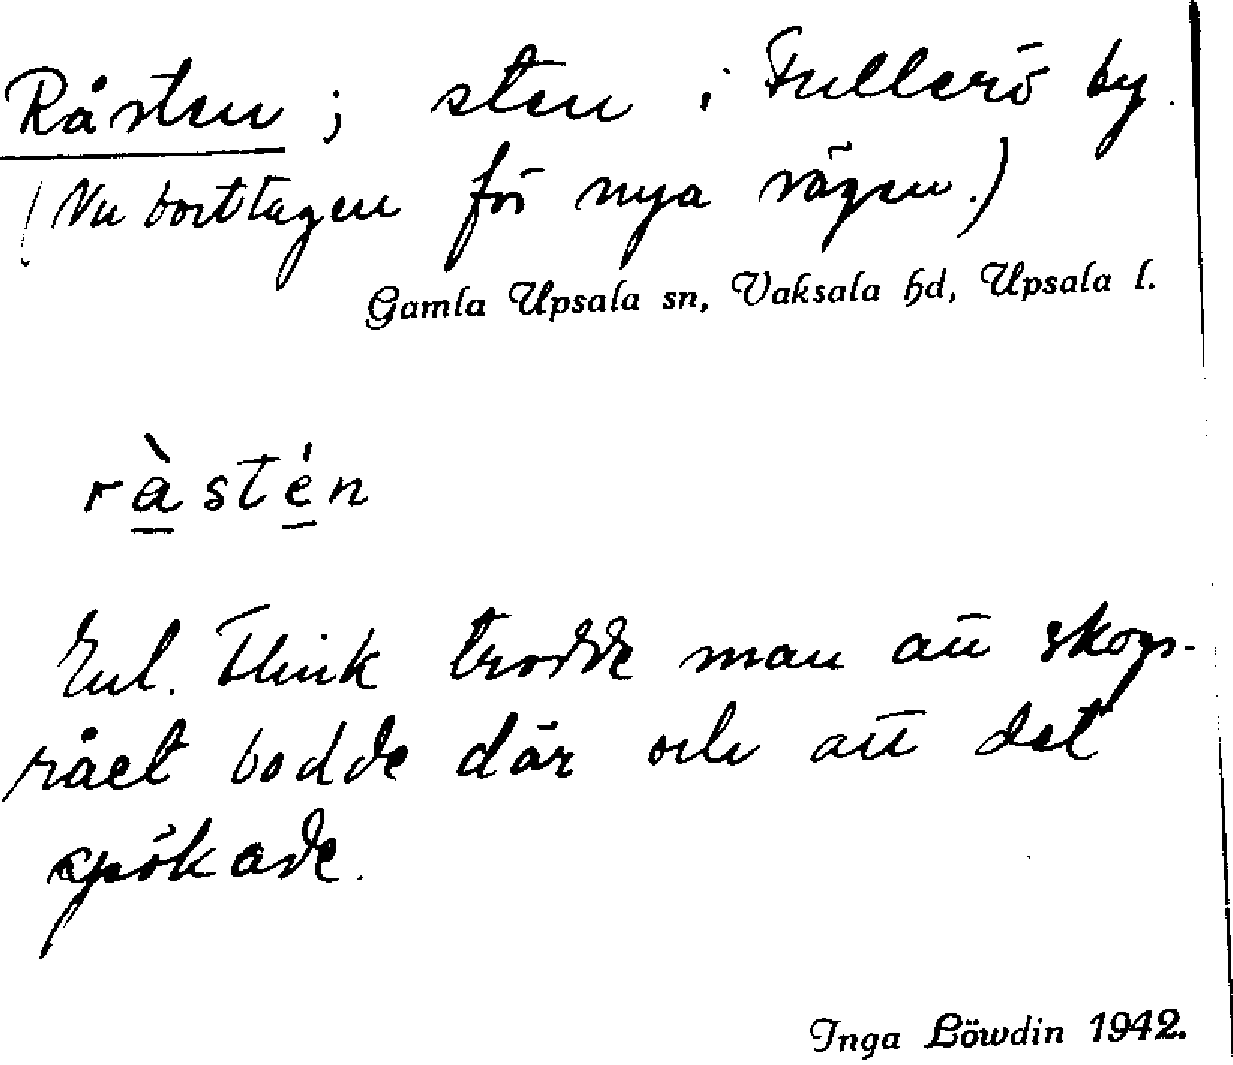 Råsten; sten i Fullerö by.
(Nu borttagen för nya vägen.)
Gamla Upsala sn, Vaksala hd, Upsala l.
ràstén
Enl. Flink trodde man att skogs-
rået bodde där och att det
spökade.
Inga Löwdin 1942.